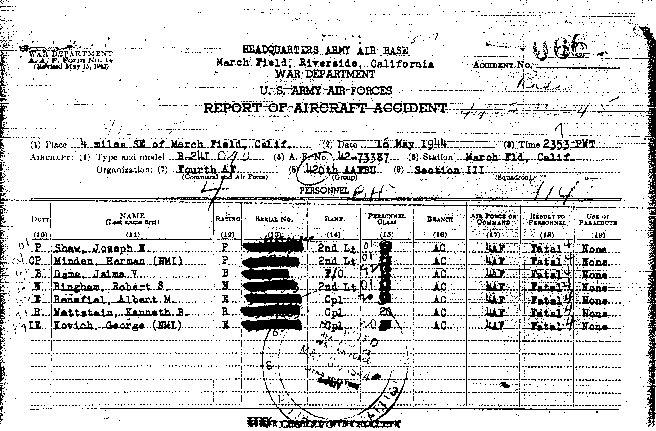 HEADQUARTERS ARMY AIR BASE
WAR DEPARTMENT
A. A. F. FORM NO. 14
(Revised May 15, 1942)
March Field, Riverside, California
ACCIDENT NO.
WAR DEPARTMENT
U. S. ARMY AIR FORCES
REPORT OF AIRCRAFT ACCIDENT
(1) Place 4 miles SE of March Field, Calif. (2) Date 16 May 1944 (3) Time 2353 PWT
AIRCRAFT: (4) Type and model B-24J (5) A. F. No. 42-73387 (6) Station March Fld, Calif.
Organization: (7) Fourth AF (8) 420th AAFBU (9) Section III
(Command and Air Force) (Group) (Squadron)
PERSONNEL
DUTY NAME (Last name first) RATING SERIAL NO. RANK PERSONNEL CLASS BRANCH AIR FORCE OR COMMAND RESULT TO PERSONNEL USE OF PARACHUTE
(10) (11) (12) (13) (14) (15) (16) (17) (18) (19)
P Shaw, Joseph P 2nd Lt AC 4AF Fatal None
CP Minden, Herman (NMI) P 2nd Lt AC 4AF Fatal None
B Jaime V. B F/O AC 4AF Fatal None
N Bingham, Robert S. N 2nd Lt AC 4AF Fatal None
E Benefiel, Albert M. E Cpl AC 4AF Fatal None
R Wettstein, Kenneth B. R Cpl 20 AC 4AF Fatal None
Kovich, George (NMI) Cpl AC 4AF Fatal None